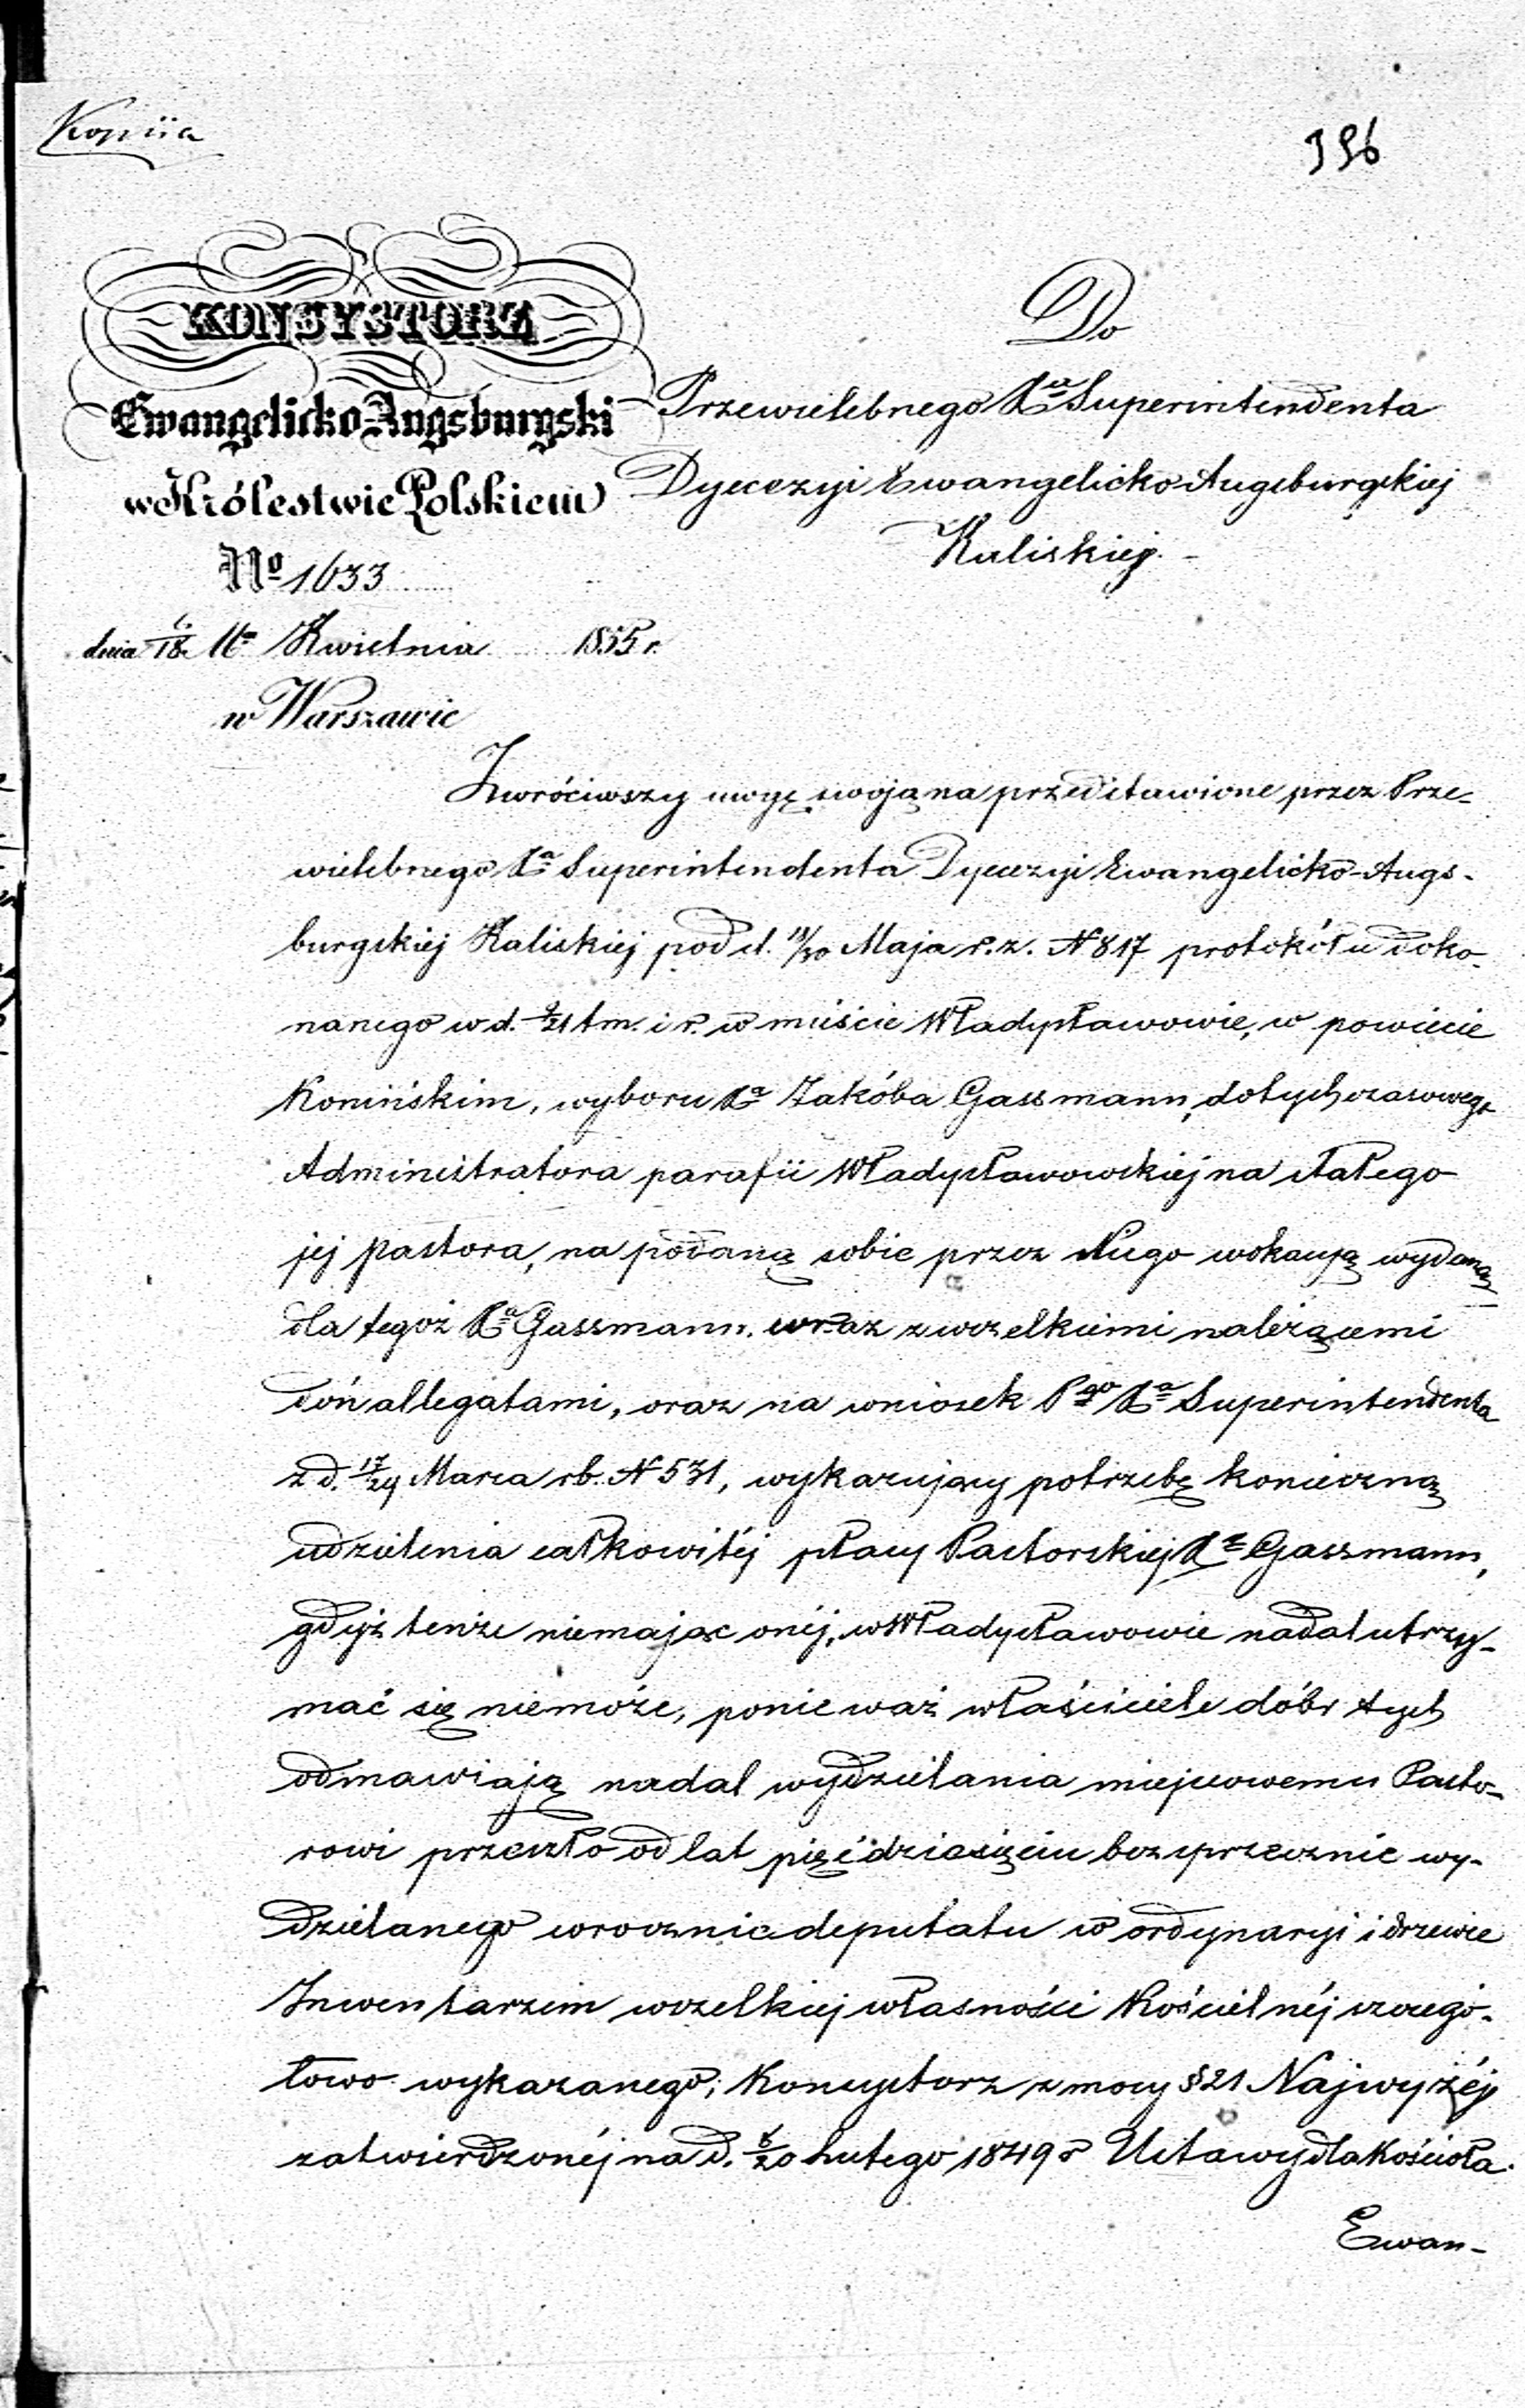 Kopiia
396
KONSYSTORZ
Ewangelicko-Augsburgski
w Królestwie Polskiem
No 1633
dnia 6/18 Mca Kwietnia 1855 r.
w Warszawie
Do
Przewielebnego Xa Superintendenta
Dyecezyi Ewangelicko Augsburgskiej
Kaliskiej.
Zwróciwszy uwagę swoją na przedstawione przez Prze-
wielebnego Xa Superintendenta Dyecezyi Ewangelicko-Augs-
burgskiej Kaliskiej pod d. 18/30 Maja r. z. N 817 protokółu doko-
nanego w d. 9/21 tm. i r. w mieście Władysławowie, w powiecie
Konińskim, wyboru Xa Jakóba Gassmann, dotychczasowego
Administratora parafii Władysławowskiej na stałego
jej Pastora, na podaną sobie przez Niego wokacyą wydaną
dla tegoż Xa Gassmann, wraz z wszelkiemi należącemi
doń allegatami, oraz na wniosek Pgo Xa Superintendenta
z d. 17/29 Marca rb. N 531, wykazujący potrzebę konieczną
udzielenia całkowitéj płacy Pastorskiej Xa Gassmann,
gdyż tenże niemając onéj, w Władysławowie nadal utrzy-
mać się niemoże, ponieważ właściciele dóbr tych
odmawiają nadal wydzielania miejscowemu Pasto-
rowi przeszło od lat pięćdziesięciu bezsprzecznie wy-
dzielanego wrocznie deputatu w ordynaryi i drzewie
Inwentarzem wszelkiej własności Kościelnéj szczegó-
łowo wykazanego; Konsystorz z mocy § 21 Najwyżéj
zatwierdzonéj na d. 8/20 Lutego 1849 r Ustawy dla Kościoła
Ewan-